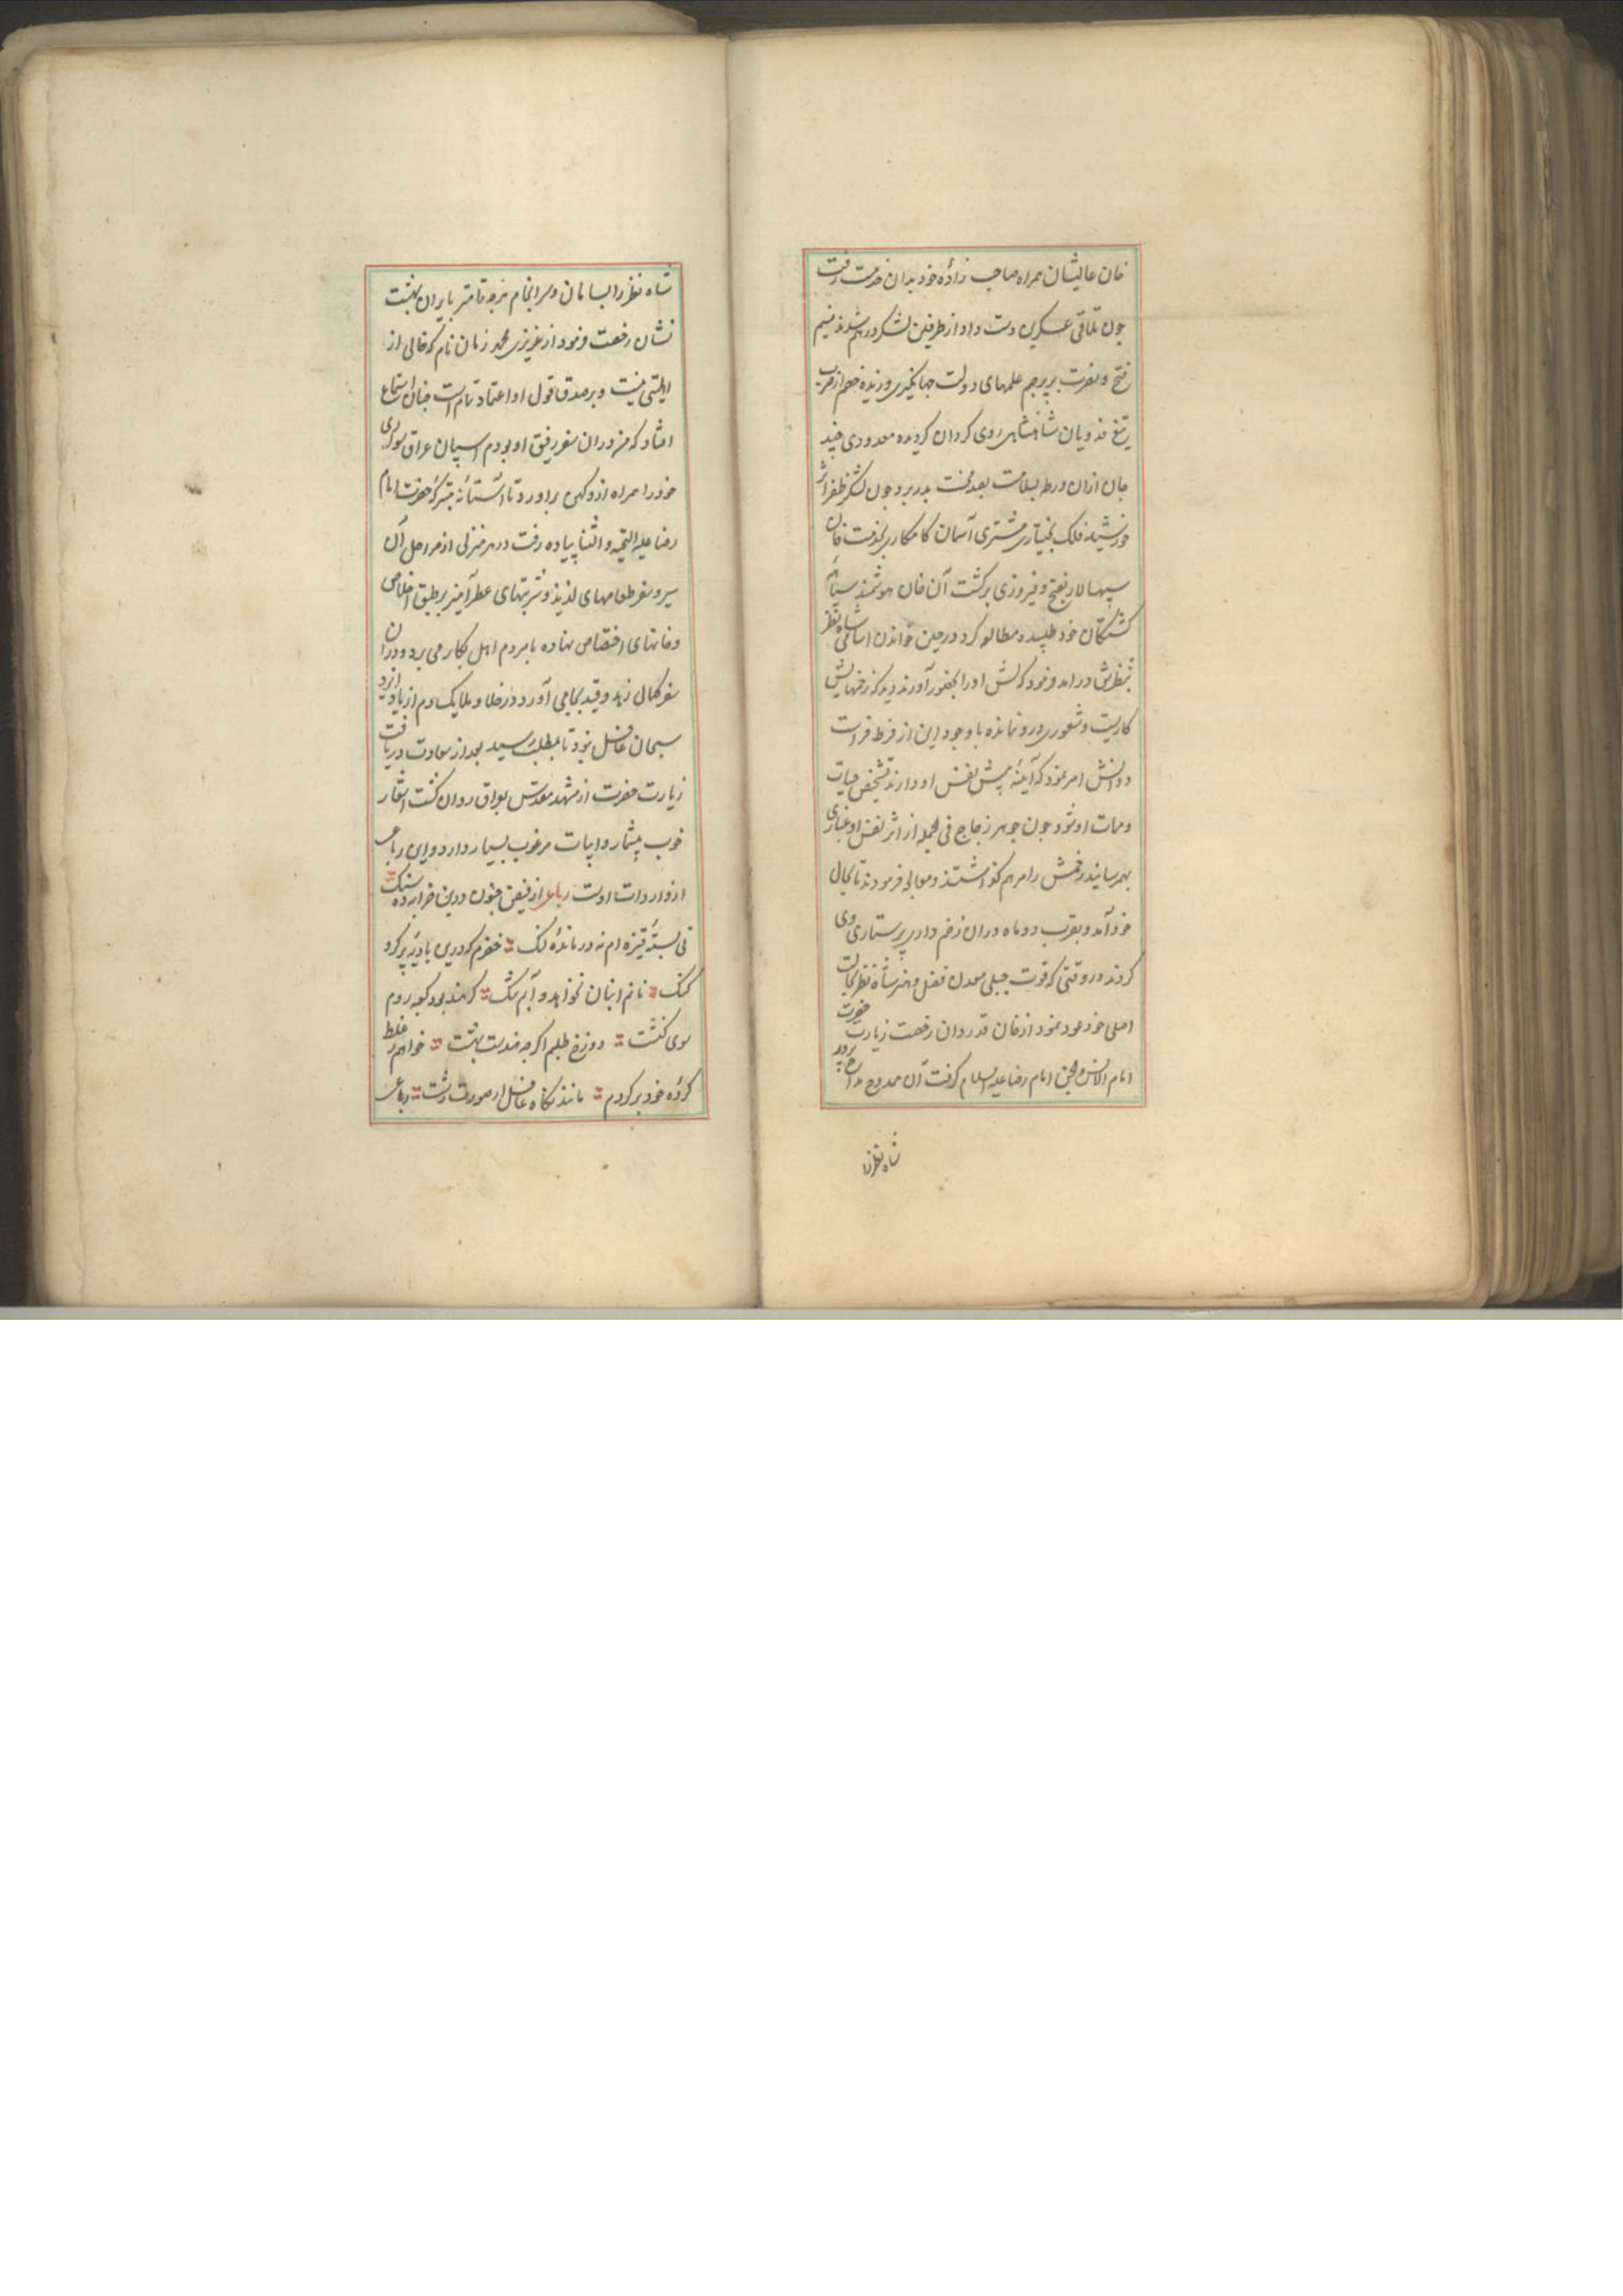 خان عالیشان همراه صاحب زاده خود بدان خدمت رفت
چون تلاقی عسکرین دست داد از طرفین لشکر درهم شدند نسیم
فتح و نصرت بر پرچم علمهای دولت جهانگیری وزیده خصم از ضرب
تیغ فدویان شاهنشاهی روی گردان گردیده معدودی چند
جان ازان ورطه بسلامت بعد محنت بدر برد چون لشکر ظفر اثر
خورشید فلک بختیاری مشتری آسمان کامکاری بخدمت خان
سپهسالار بفتح و فیروزی برگشت آن خان هوشمند سیاهه
کشتگان خود طلبیده مطالعه کرد در حین خواندن اسامی شاه نظر
بنظرش درامد فرمود که لش او را بحضور آورند دید که زخمهایش
کاریست و شعوری درو نمانده با وجود این از فرط فراست
و دانش امر نمود که آینهٔ پیش نفس او دارند تشخیص حیات
و ممات او شود چون جوهر زجاج فی الجمله از اثر نفس او غباری
بهمرسانید زخمش را مرهم گذاشتند و معالجه فرمودند تا بحال
خود آمد و بقرب دو ماه دران زخم داری پرستاری وی
کردند در وقتی که قوت جبلی معدن فضل و هنر شاه نظر بحالت
اصلی خود عود نمود از خان قدردان رخصت زیارت حضرت
امام الانس و الجن امام رضا علیه السلام گرفت آن ممدوح مداح پرور
شاه نظر را
شاه نظر را بسامان و سرانجام هرچه تمامتر بایران بهشت
نشان رخصت فرمود از عزیزی محمد زمان نام که خالی از
اهلیتی نیست و بر صدق قول او اعتماد تام است چنان استماع
افتاد که من دران سفر رفیق او بودم اسپان عراقی سواری
خود را همراه از دکهن براورد تا آستانهٔ متبرکهٔ حضرت امام
رضا علیه التحیه و الثنا پیاده رفت در هر منزلی از مراحل آن
سیر و سفر طعامهای لذیذ و شربتهای عطرآمیز بر طبق اخلاص
و خانهای اختصاص نهاده با مردم اهل بکار می برد و دران
سفر کمال زهد و قید بجا می آورد در خلا و ملا یک دم از یاد ایزد
سبحان غافل نبود تا بمطلب رسید بعد از سعادت دریافت
زیارت حضرت از مشهد مقدس بعراق روان گشت اشعار
خوب بیشمار و ابیات مرغوب بسیار دارد و این رباعی
از واردات اوست رباعی از فیض جنون درین خرابه ده سنگ
نی بستهٔ قیزه ام نه درماندهٔ لنگ خضرم که درین بادیه پر کرد
کنک نانم انبان نخواهد و آبم مشک گر هند بود کعبه روم
سوی کنشت دوزخ طلبم اگرچه هندست بهشت خواهم غلط
کردهٔ خود برگردم مانند نگاه غافل از صورت زشت رباعی